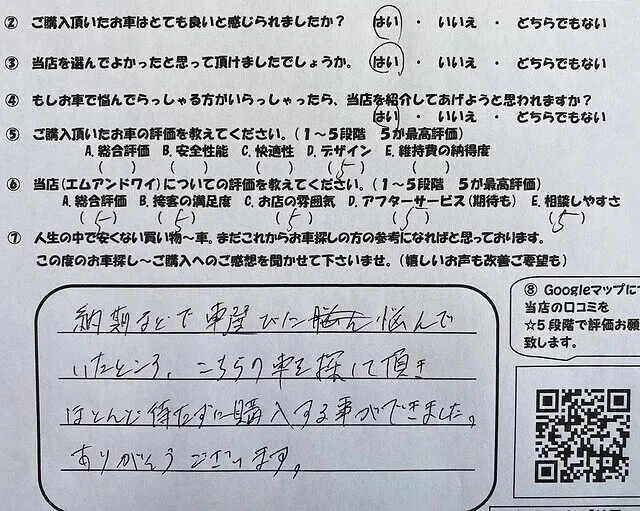 ② ご購入頂いたお車はとても良いと感じられましたか？ はい ・ いいえ ・ どちらでもない
③ 当店を選んでよかったと思って頂けましたでしょうか。 はい ・ いいえ ・ どちらでもない
④ もしお車で悩んでらっしゃる方がいらっしゃったら、当店を紹介してあげようと思われますか？
はい ・ いいえ ・ どちらでもない
⑤ ご購入頂いたお車の評価を教えてください。(１～５段階 ５が最高評価)
A. 総合評価 B. 安全性能 C. 快適性 D. デザイン E. 維持費の納得度
( ) ( ) ( ) ( 5 ) ( )
⑥ 当店(エムアンドワイ)についての評価を教えてください。(１～５段階 ５が最高評価)
A. 総合評価 B. 接客の満足度 C. お店の雰囲気 D. アフターサービス(期待も) E. 相談しやすさ
( 5 ) ( 5 ) ( 5 ) ( 5 ) ( 5 )
⑦ 人生の中で安くない買い物～車。まだこれからお車探しの方の参考になればと思っております。
この度のお車探し～ご購入へのご感想を聞かせて下さいませ。(嬉しいお声も改善ご要望も)
納期などで車選びに悩んで
いたところ、こちらの車を探して頂き
ほとんど待たずに購入する事ができました。
ありがとうございます。
⑧ Googleマップにて
当店の口コミを
☆５段階で評価お願
致します。